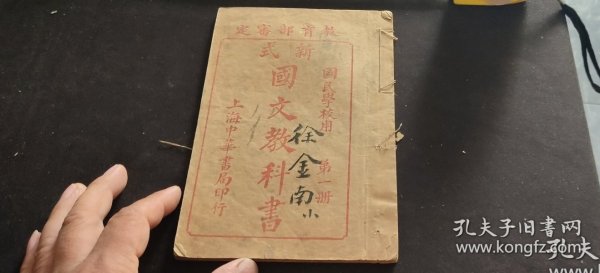 教育部審定
新式
國民學校用 第一册
國文教科書
上海中華書局印行
徐金南
孔夫子旧书网
www.kongfz.com
孔夫